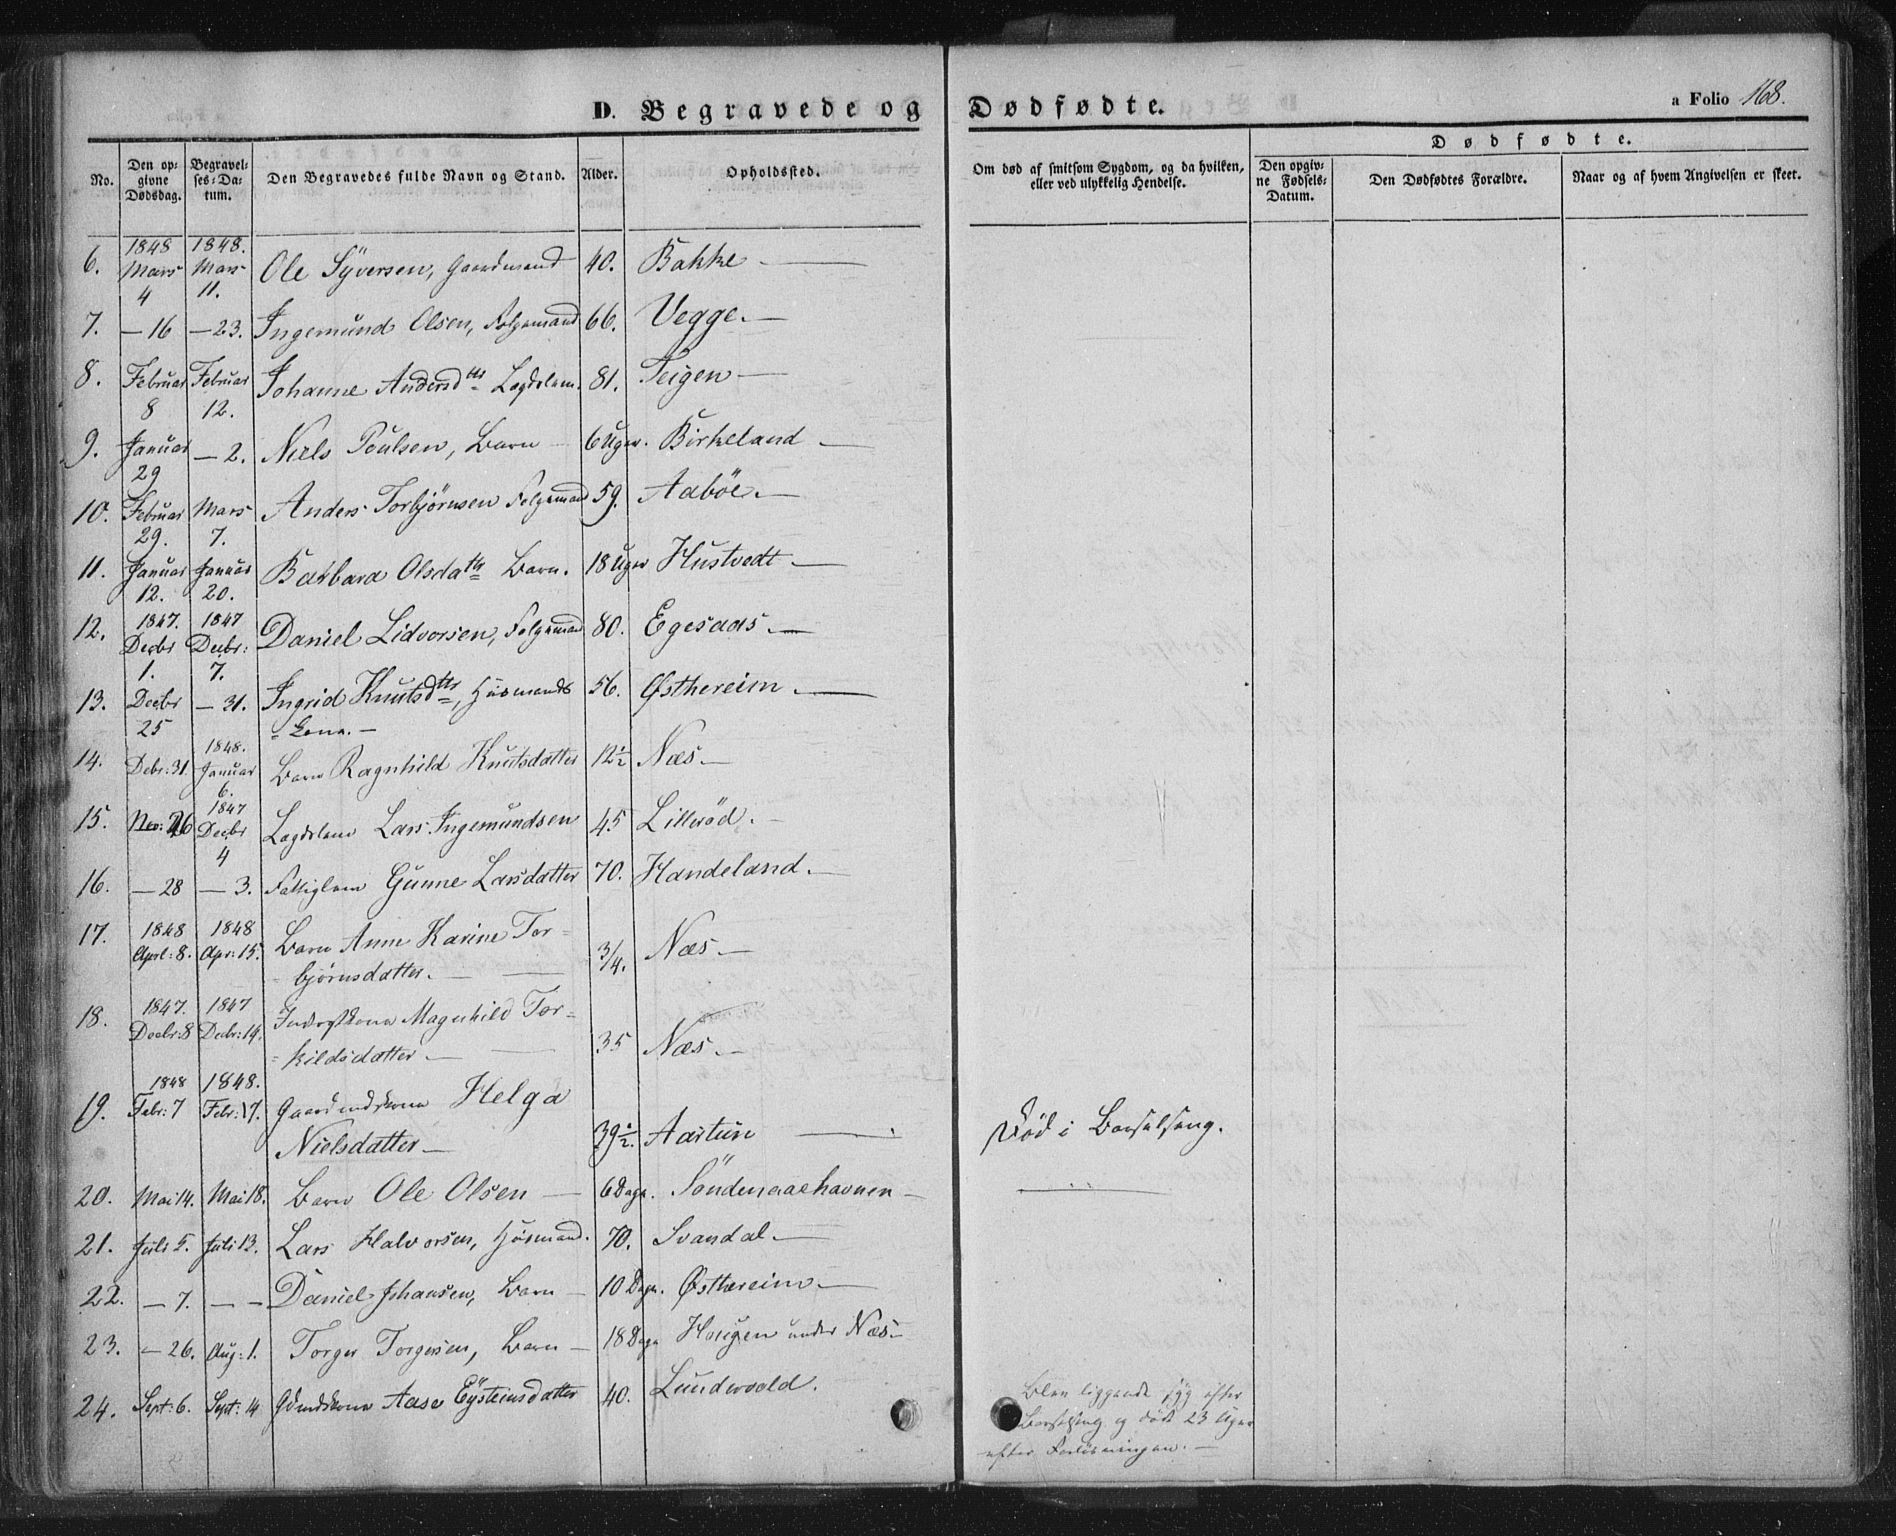 D. Begravede og Dødfødte.
a Folio 168.
No.
Den op-
givne
Dødsdag.
Begravel-
ses-Da-
tum.
Den Begravedes fulde Navn og Stand.
Alder.
Opholdssted.
Om død af smitsom Sygdom, og da hvilken,
eller ved ulykkelig Hendelse.
Dødfødte.
Den opgiv-
ne Fødsels-
Datum.
Den Dødfødtes Forældre.
Naar og af hvem Angivelsen er skeet.
6. 1848 Mars 4 1848. Mars 11. Ole Syversen, Gaardmand 40. Bakke —
7. — 16 — 23. Ingemund Olsen, Folgemand 66. Vegge. —
8. Februar 8 Februar 12. Johanne Andersdtr Lægdslem. 81. Teigen —
9. Januar 29 — 2. Niels Poulsen, Barn — 6 Uger. Birkeland —
10. Februar 29. Mars 7. Anders Torbjørnsen Folgemand 59. Aabøe. —
11. Januar 12. Januar 20. Barbara Olsdatr Barn. 18 Uger Hustvedt —
12. 1847. Decbr 1. 1847 Decbr: 7. Daniel Lidvorsen, Folgemand 80. Egesaas. —
13. Decbr 25 — 31. Ingrid Knutsdtr, Huusmands 56. Østhereim. —
= Kone. —
14. Debr: 31 1848. Januar 6. Barn Ragnhild Knutsdatter 12½ Næs. —
15. 26 1847 Decbr 4 Lægdslem Lars Ingemundsen 45 Lillerød. —
16. — 28 — 3. Fattiglem Gunne Larsdatter 70. Handeland. —
17. 1848 Aprl: 8. 1848 Apr: 15. Barn Ann Karine Tor=
= bjørnsdatter. — 3/4. Næs —
18. 1847. Decbr: 8 1847 Decbr: 14. Magnhild Tor=
= kildsdatter — 35 Næs. —
19. 1848 Febr: 7 1848. Febr: 17. Gaardmdskone Helga
Nielsdatter — 39½. Aartun — Død i Barselseng.
20. Mai 14. Mai 18. Barn Ole Olsen — 6 Dage. Söndenaaehavnen —
21. Juli 5. Juli 13. Lars Halvorsen, Huusmand. 70. Svandal. —
22. — 7. — — Daniel Johansen, Barn — 10 Dage. Østhereim. —
23. — 26. Aug: 1. Torger Torgersen, Barn — 18 Dage Haugen under Næs —
24. Sept: 6. Sept: 14 Gdmdskone Aase Eysteinsdatter 40. Lundevold.
Blev liggende syg efter
Barselseng og døde 23 Uger
efter Forløsningen. —